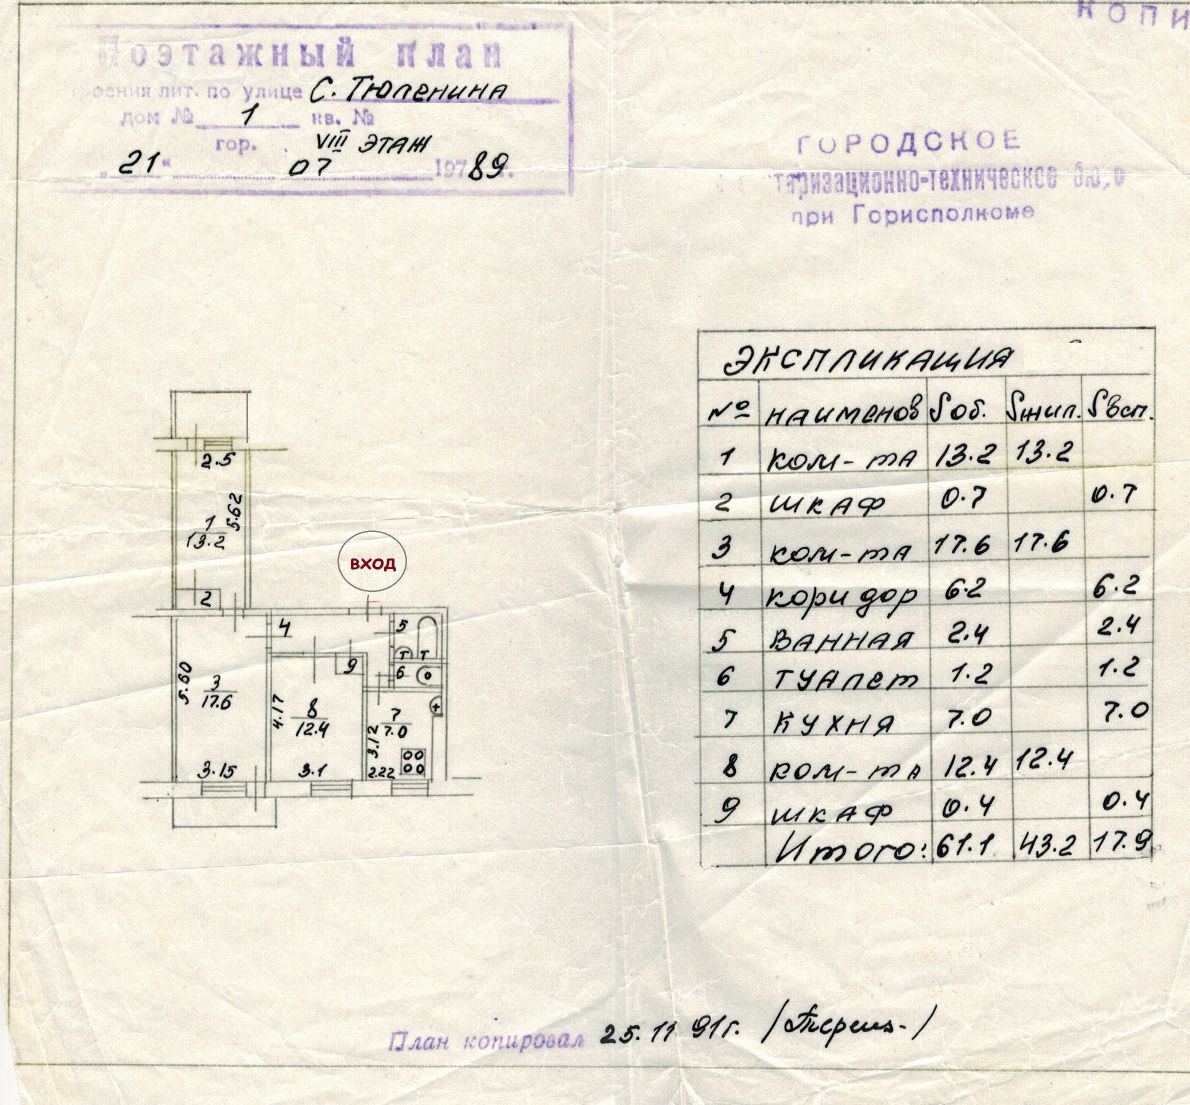 КОПИ
Поэтажный план
роения лит. по улице С. Тюленина
дом № 1 кв. №
гор. VIII ЭТАЖ
"21" 07 197 89 г.
ГОРОДСКОЕ
таризационно-техническое бюро
при Горисполкоме
ЭКСПЛИКАЦИЯ
№ наименов Sоб. Sжил. Sвсп.
1 ком-та 13.2 13.2
2 шкаф 0.7 0.7
3 ком-та 17.6 17.6
4 коридор 6.2 6.2
5 ВАННАЯ 2.4 2.4
6 ТУАЛЕТ 1.2 1.2
7 КУХНЯ 7.0 7.0
8 ком-та 12.4 12.4
9 шкаф 0.4 0.4
Итого: 61.1 43.2 17.9
2.5
5.62
1
13.2
2
вход
4
5
Т Т
6
9
5.60
3
17.6
3.15
4.17
8
12.4
3.1
7
7.0
3.12
2.22
План копировал 25.11 91г.